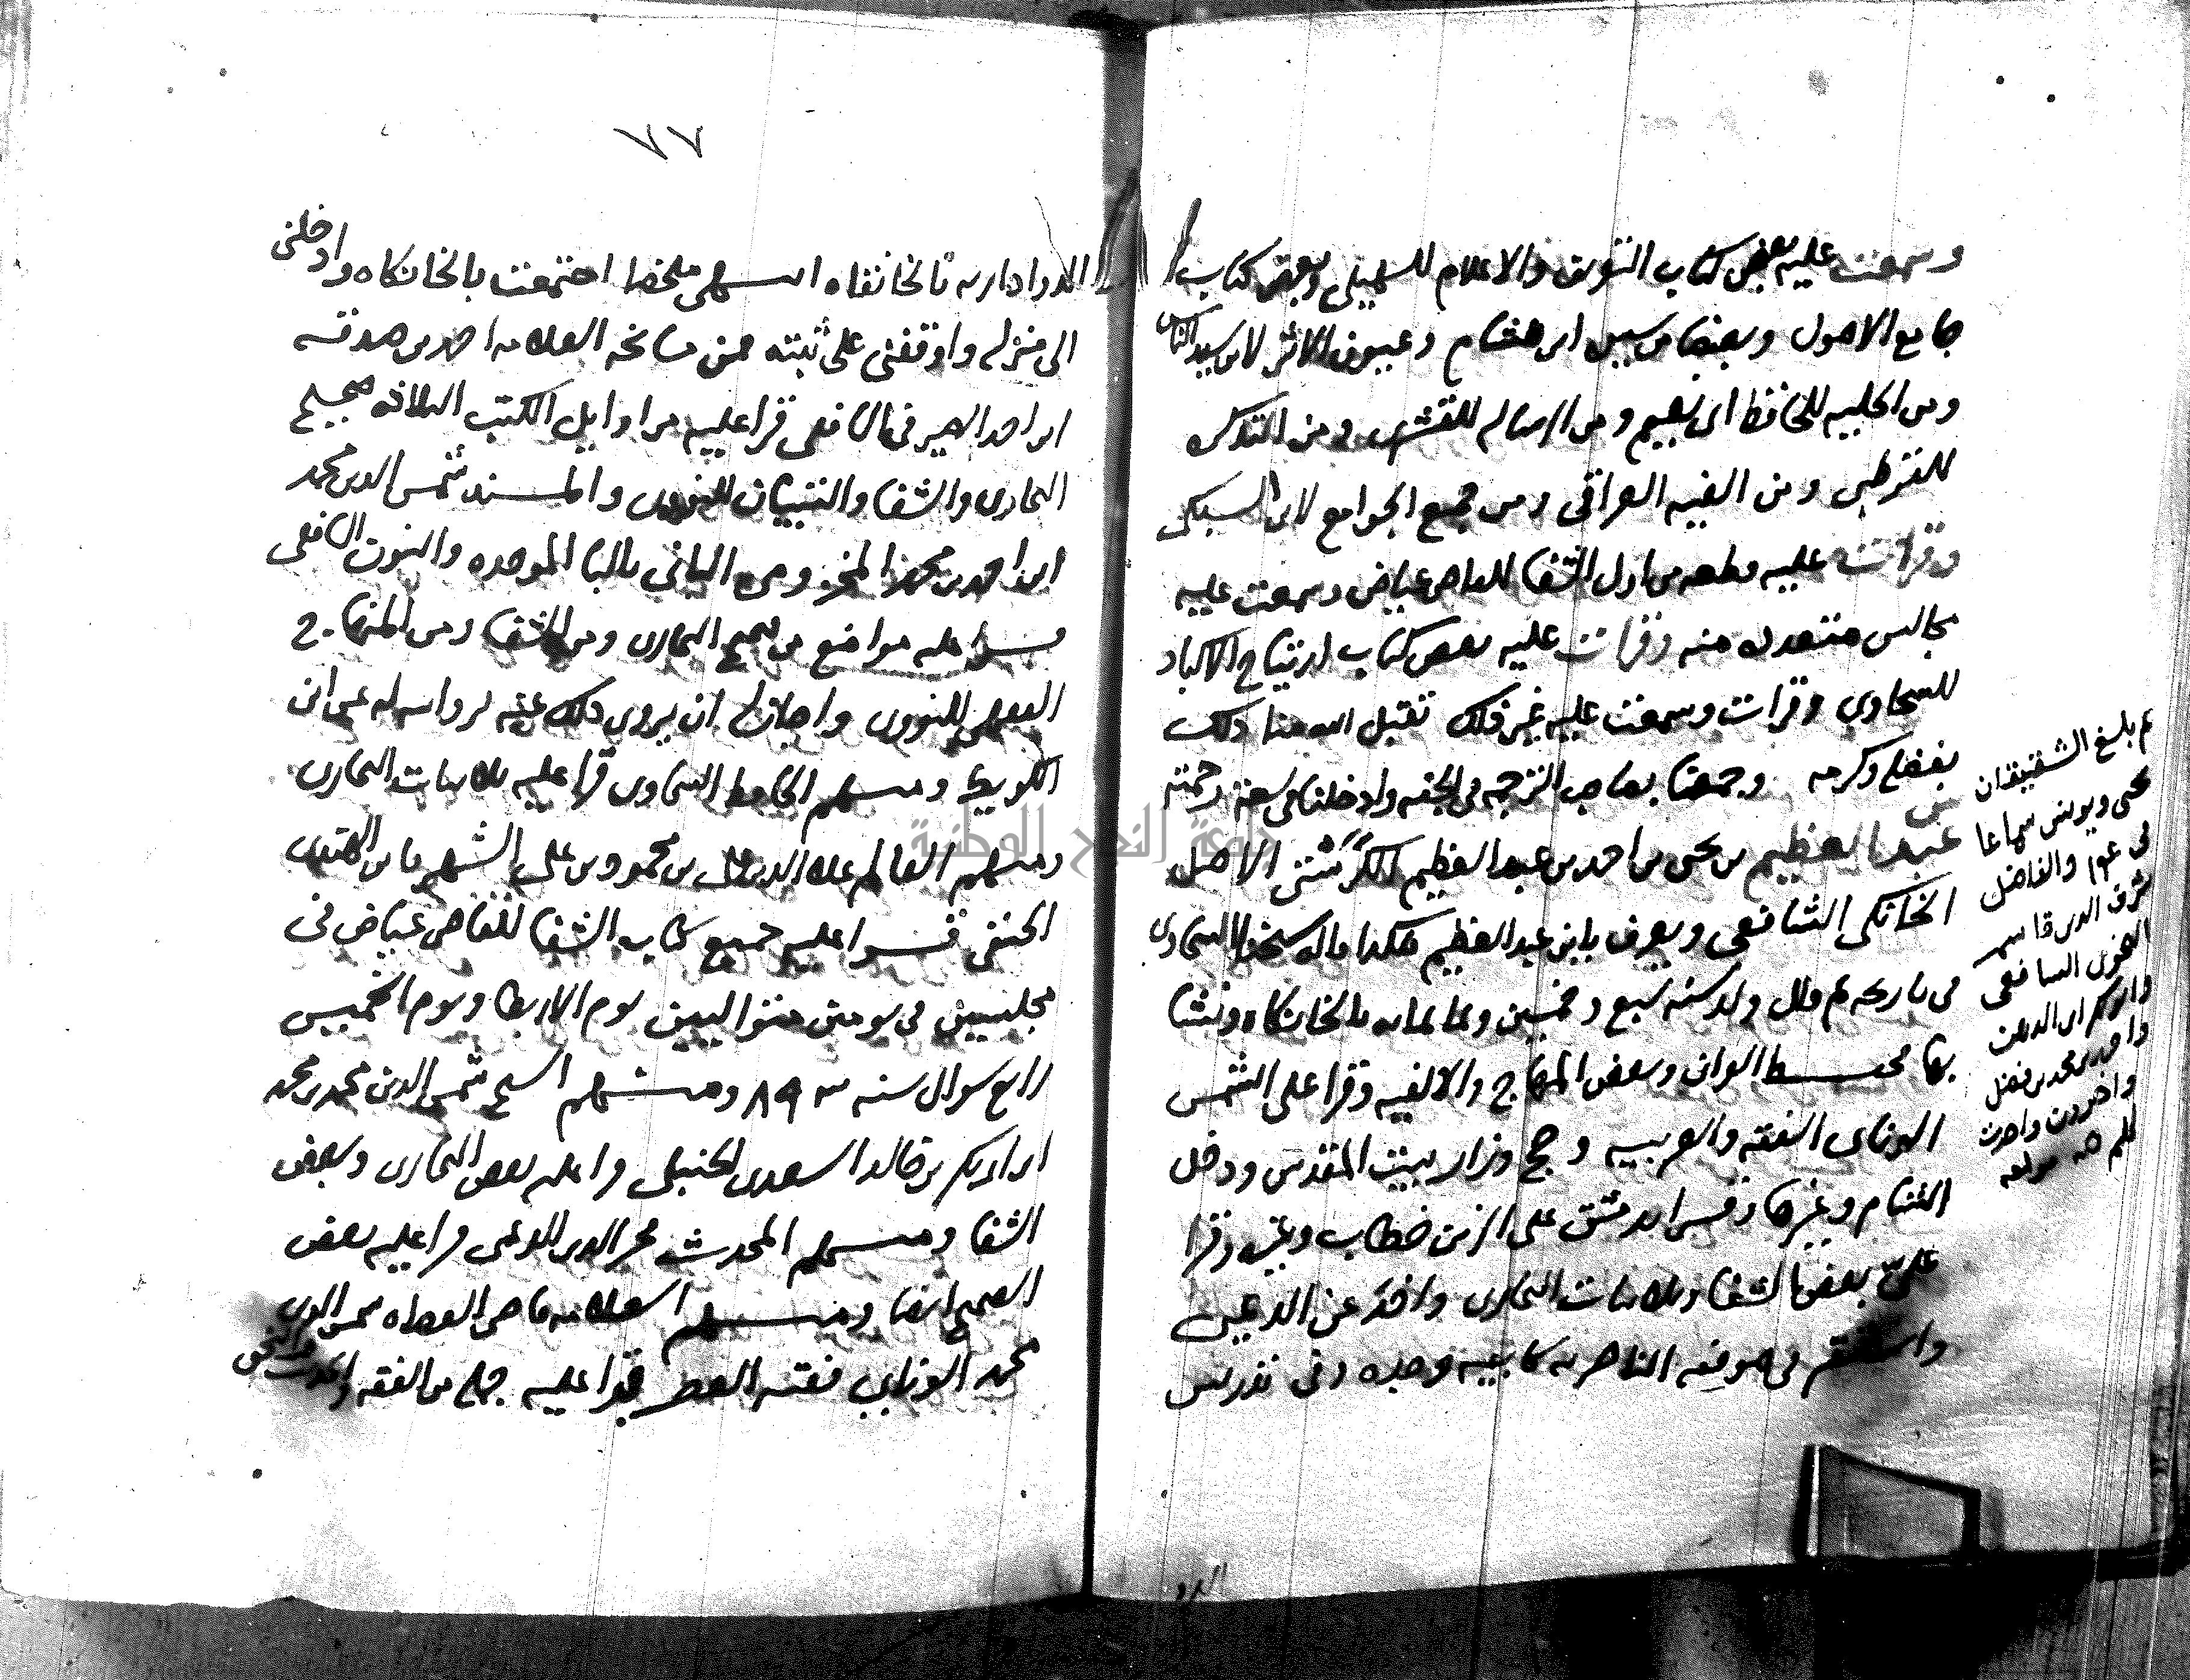 وسمعت عليه بعض كتاب التعريف والاعلام للسهيلي وبعض كتاب
جامع الاصول وبعضا من سيرة ابن هشام وعيون الاثر لابن سيد الناس
ومن الحلية للحافظ ابي نعيم ومن الرسالة للقشيري ومن التذكرة
للقرطبي ومن الفية العراقي ومن جمع الجوامع لابن السبكي
وقرات عليه قطعة من اول الشفا للقاضي عياض وسمعت عليه
مجالس متعددة منه وقرات عليه بعض كتاب ارتياح الاكباد
للسخاوي وقرات وسمعت عليه غير ذلك تقبل الله منا ذلك
بفضله وكرمه وجمعنا بصاحب الترجمة في الجنة وادخلنا في سعة رحمته
عبد العظيم بن يحيى بن احمد بن عبد العظيم الاصل
الخانكي الشافعي ويعرف بابن عبد العظيم هكذا قاله شيخنا السخاوي
في تاريخه ثم قال ولد سنة سبع وخمسين وثمانماية بالخانكاه ونشا
بها فحفظ القران وبعض المنهاج والالفية وقرا على الشمس
الونائي الفقه والعربية وحج وزار بيت المقدس ودخل
الشام وغيرها وقرا بدمشق على الزين خطاب وغيره وقرا
علي بعض الشفا وثلاثيات البخاري واخذ عن الديمي
واستقر في صوفية الناصرية كابيه وجده وفي تدريس
ثم بلغ الشقيقان
يحيى ويونس سماعا
في والفاضل
شرف الدين قاسم
الشافعي
واحمد بن محمد بن فضل
الدو
٧٧
الدوادارية بالخانقاه انتهى ملخصا اجتمعت بالخانكاه وادخلني
الى منزله واوقفني على ثبته فمن مشايخه العلامة احمد بن صدقة
ابن احمد الصيرفي الشافعي قرا عليه من اوايل الكتب الثلاثة صحيح
البخاري والشفا والتبيان للنووي والمسند شمس الدين محمد
ابن احمد بن محمد المخزومي الباني بالبا الموحدة والنون الشافعي
قرا عليه مواضع من صحيح البخاري ومن الشفا ومن المنهاج
الفقهي للنووي واجاز له ان يروي ذلك عنه بروايته له عن ابن
الكويك ومنهم الحافظ السخاوي قرا عليه ثلاثيات البخاري
ومنهم العالم علا الدين علي بن محمود بن علي الشهير بابن
الحنفي قرا عليه جميع كتاب الشفا للقاضي عياض في
مجلسين في يومين متواليين يوم الاربعا ويوم الخميس
رابع شوال سنة ٨٩٣ ومنهم الشيخ شمس الدين محمد بن محمد
ابن ابي بكر بن خالد السعدي الحنبلي قرا عليه بعض البخاري وبعض
الشفا ومنهم المحدث فخر الدين الديمي قرا عليه بعض
الصحيح ايضا ومنهم العلامة قاضي القضاة شمس الدين
محمد الونايي فقيه العصر قرا عليه جملة من الفقه